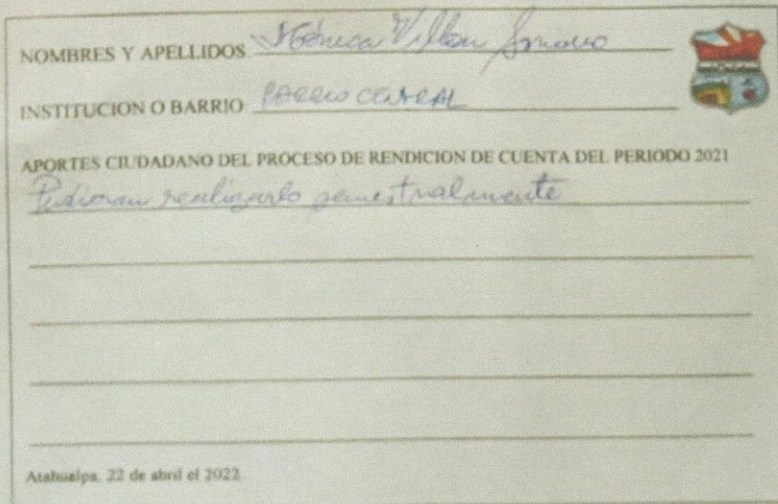 NOMBRES Y APELLIDOS Mónica Villon
INSTITUCION O BARRIO BARRIO CENTRAL
APORTES CIUDADANO DEL PROCESO DE RENDICION DE CUENTA DEL PERIODO 2021
Pudieran realizarlo semestralmente
Atahualpa, 22 de abril el 2022.